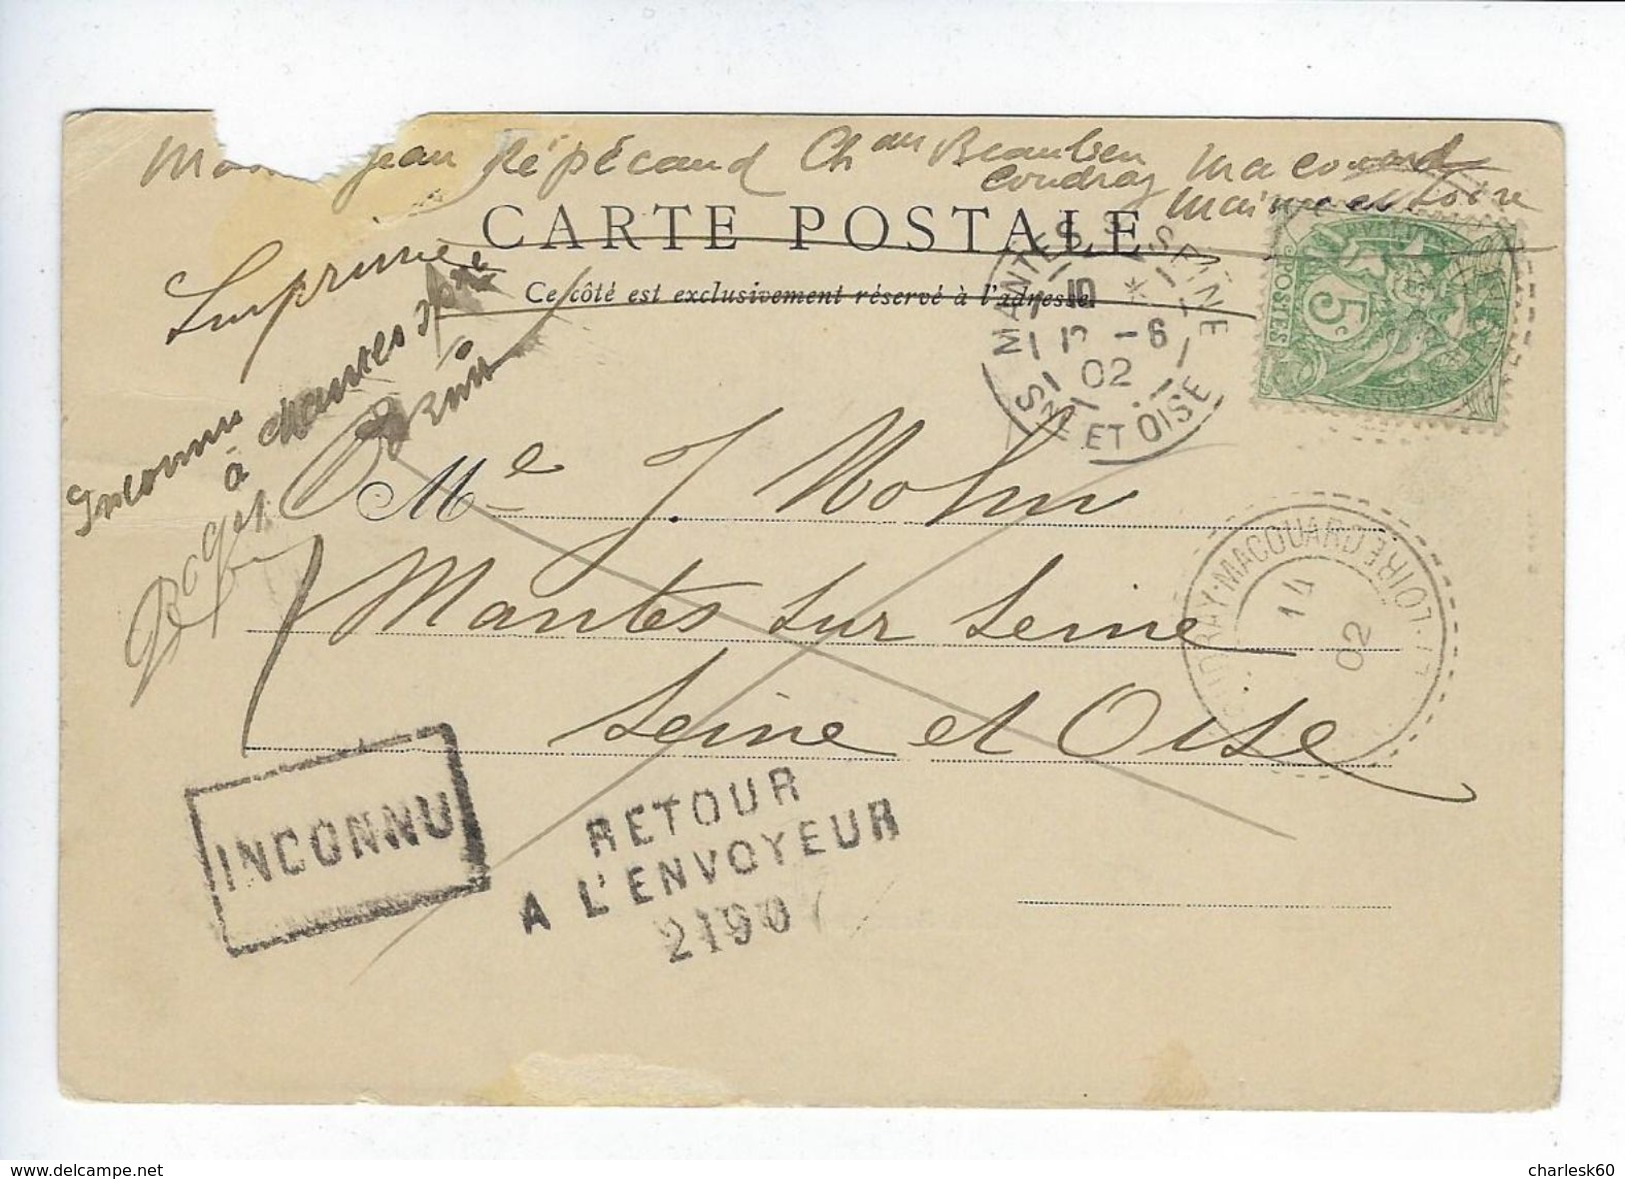 Jean Répécaud Ch au Beaulieu
Coudray Macouard
Maine et Loire
CARTE POSTALE
Ce côté est exclusivement réservé à l'adresse.
Imprimé
Inconnu
à Mantes s/ne
MANTES S. SEINE
10 *
-6
02
SNE ET OISE
POSTES
5c
Me J. Mohn
Mantes sur Seine
Seine et Oise
MACOUARD
LOIRE
14
02
INCONNU
RETOUR
A L'ENVOYEUR
2190
www.delcampe.net
charlesk60